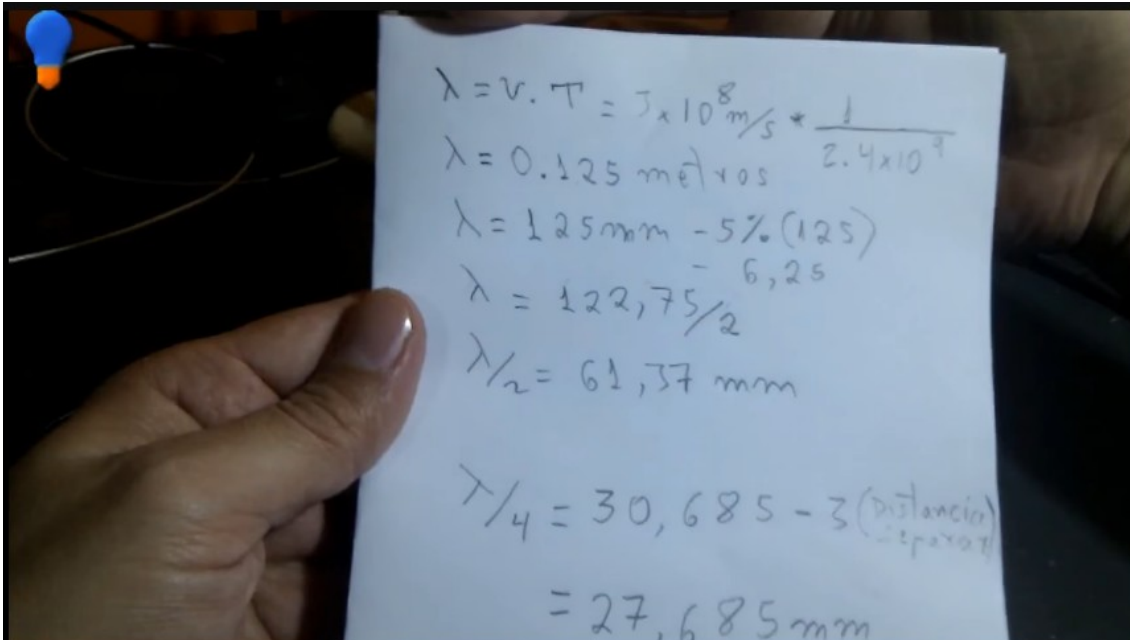 λ = v. T = 3x10⁸ m/s * 1/2.4x10⁹
λ = 0.125 metros
λ = 125mm - 5% (125)
- 6,25
λ = 122,75/2
λ/2 = 61,37 mm
λ/4 = 30,685 - 3 (Distancia
= 27,685mm